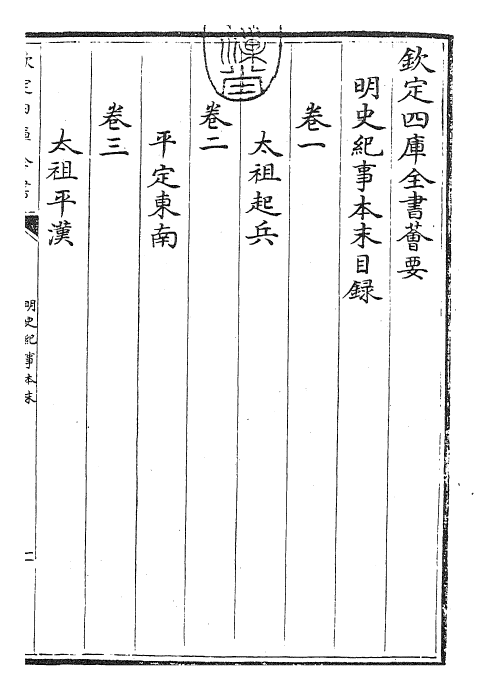 欽定四庫全書薈要
明史紀事本末目録
卷一
太祖起兵
卷二
平定東南
卷三
太祖平漢
明史紀事本末